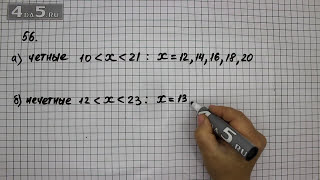 4DA5.RU
56.
а) четные 10 < x < 21 : x = 12, 14, 16, 18, 20
б) нечетные 12 < x < 23 : x = 13,